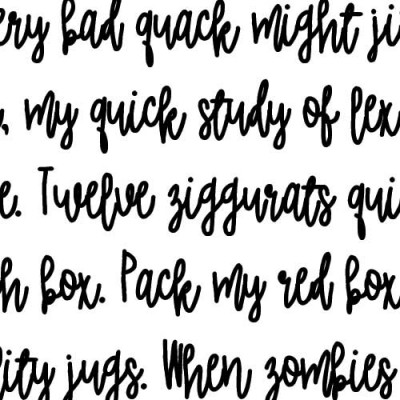 ery bad quack might ji
, my quick study of lex
e. Twelve ziggurats qui
h box. Pack my red box
lity jugs. When zombies